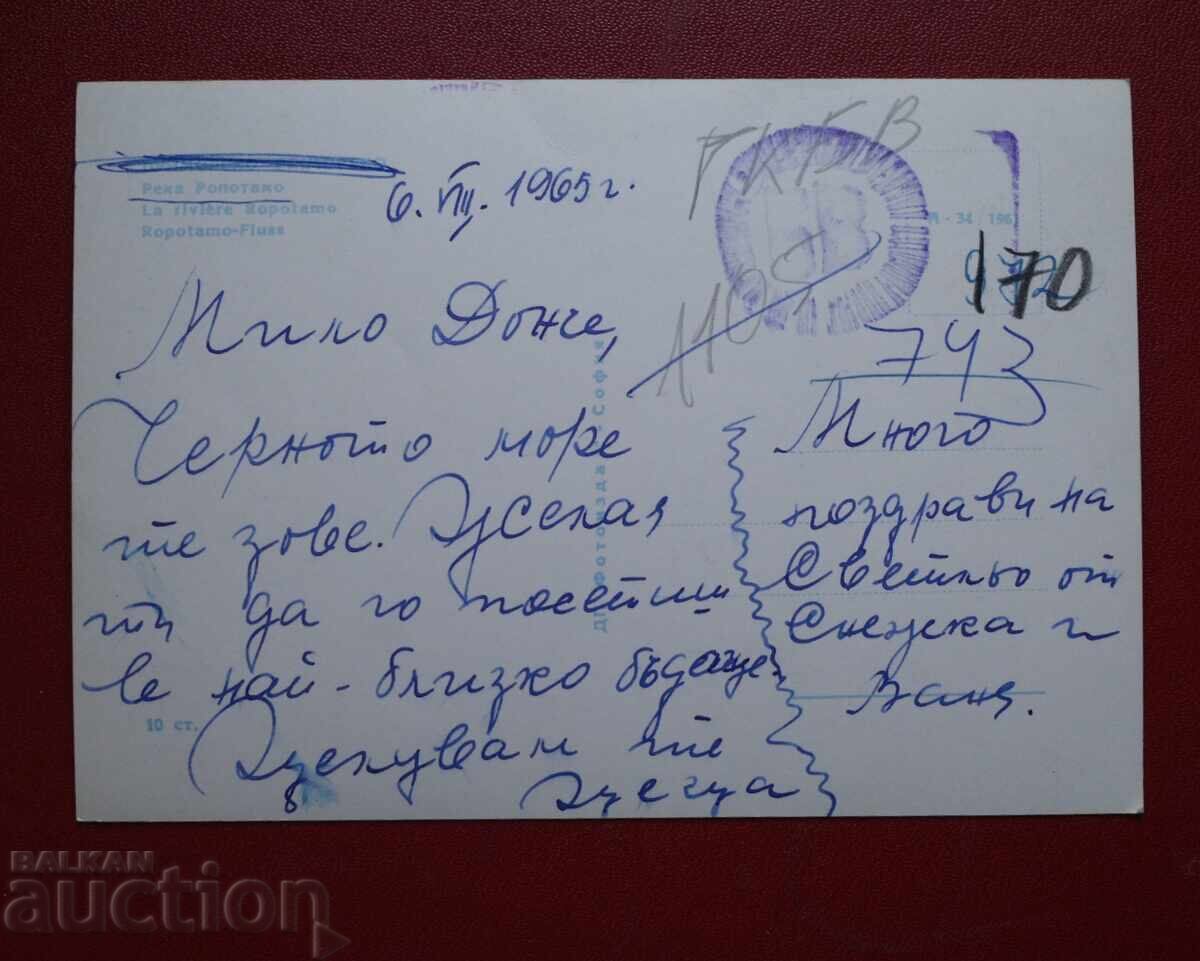 Река Ропотамо
La rivière Ropotamo
Ropotamo-Fluss
6. VIII. 1965 г.
ГКБВ
1105
М - 34 196
972
170
743
Мило Донче,
Черното море
те зове. Желая
ти да го посетиш
в най-близко бъдеще
Целувам те
Много
поздрави на
Светльо от
Снежка и
Ваня.
Фотоизда
София
10 ст.
BALKAN
auction